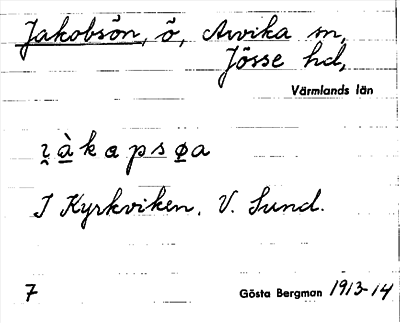 Jakobsön, ö, Arvika sn,
Jösse hd,
Värmlands län
ı̯ à k a p s ø a
I Kyrkviken. V. Sund.
7
Gösta Bergman 1913-14